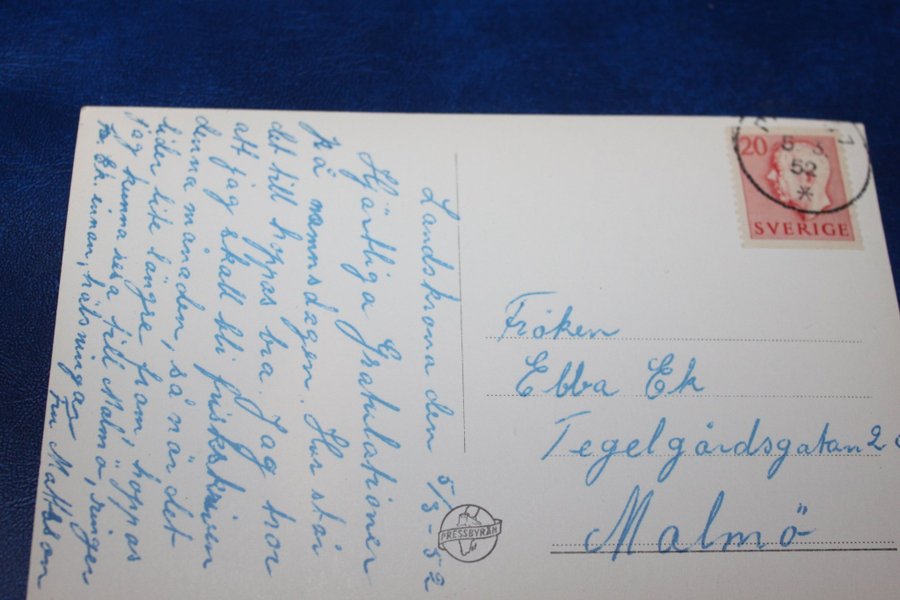 Landskrona den 5/3-52
Hjärtliga Gratulationer
på namnsdagen. Hur står
det till hoppas bra. Jag tror
att jag skall bli
denna månaden, så när det
lider lite längre fram, hoppas
jag kunna resa till Malmö, ringer
innan, hälsningar
Fru Mattsson
20
5 3
52
*
SVERIGE
Fröken
Ebba Ek
Tegelgårdsgatan 2
Malmö
PRESSBYRÅN